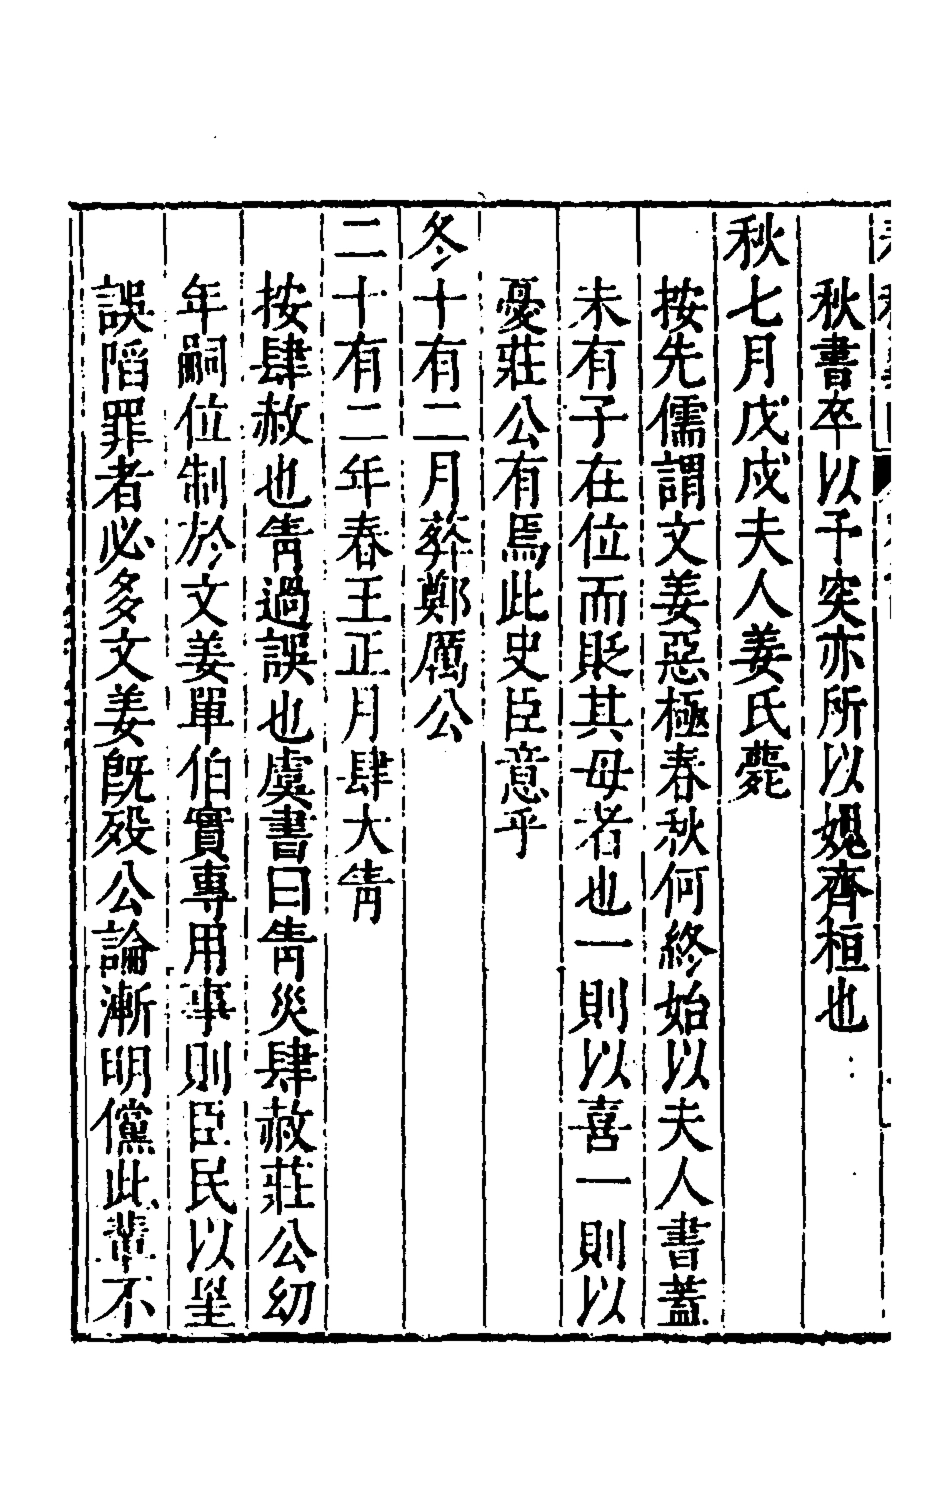 秋書卒以予突亦所以媿齊桓也
秋七月戊戌夫人姜氏薨
按先儒謂文姜惡極春秋何終始以夫人書蓋
未有子在位而貶其母者也一則以喜一則以
憂莊公有焉此史臣意乎
冬十有二月葬鄭厲公
二十有二年春王正月肆大眚
按肆赦也眚過誤也虞書曰眚災肆赦莊公幼
年嗣位制於文姜單伯實專用事則臣民以眚
誤陷罪者必多文姜旣歿公論漸明儻此輩不